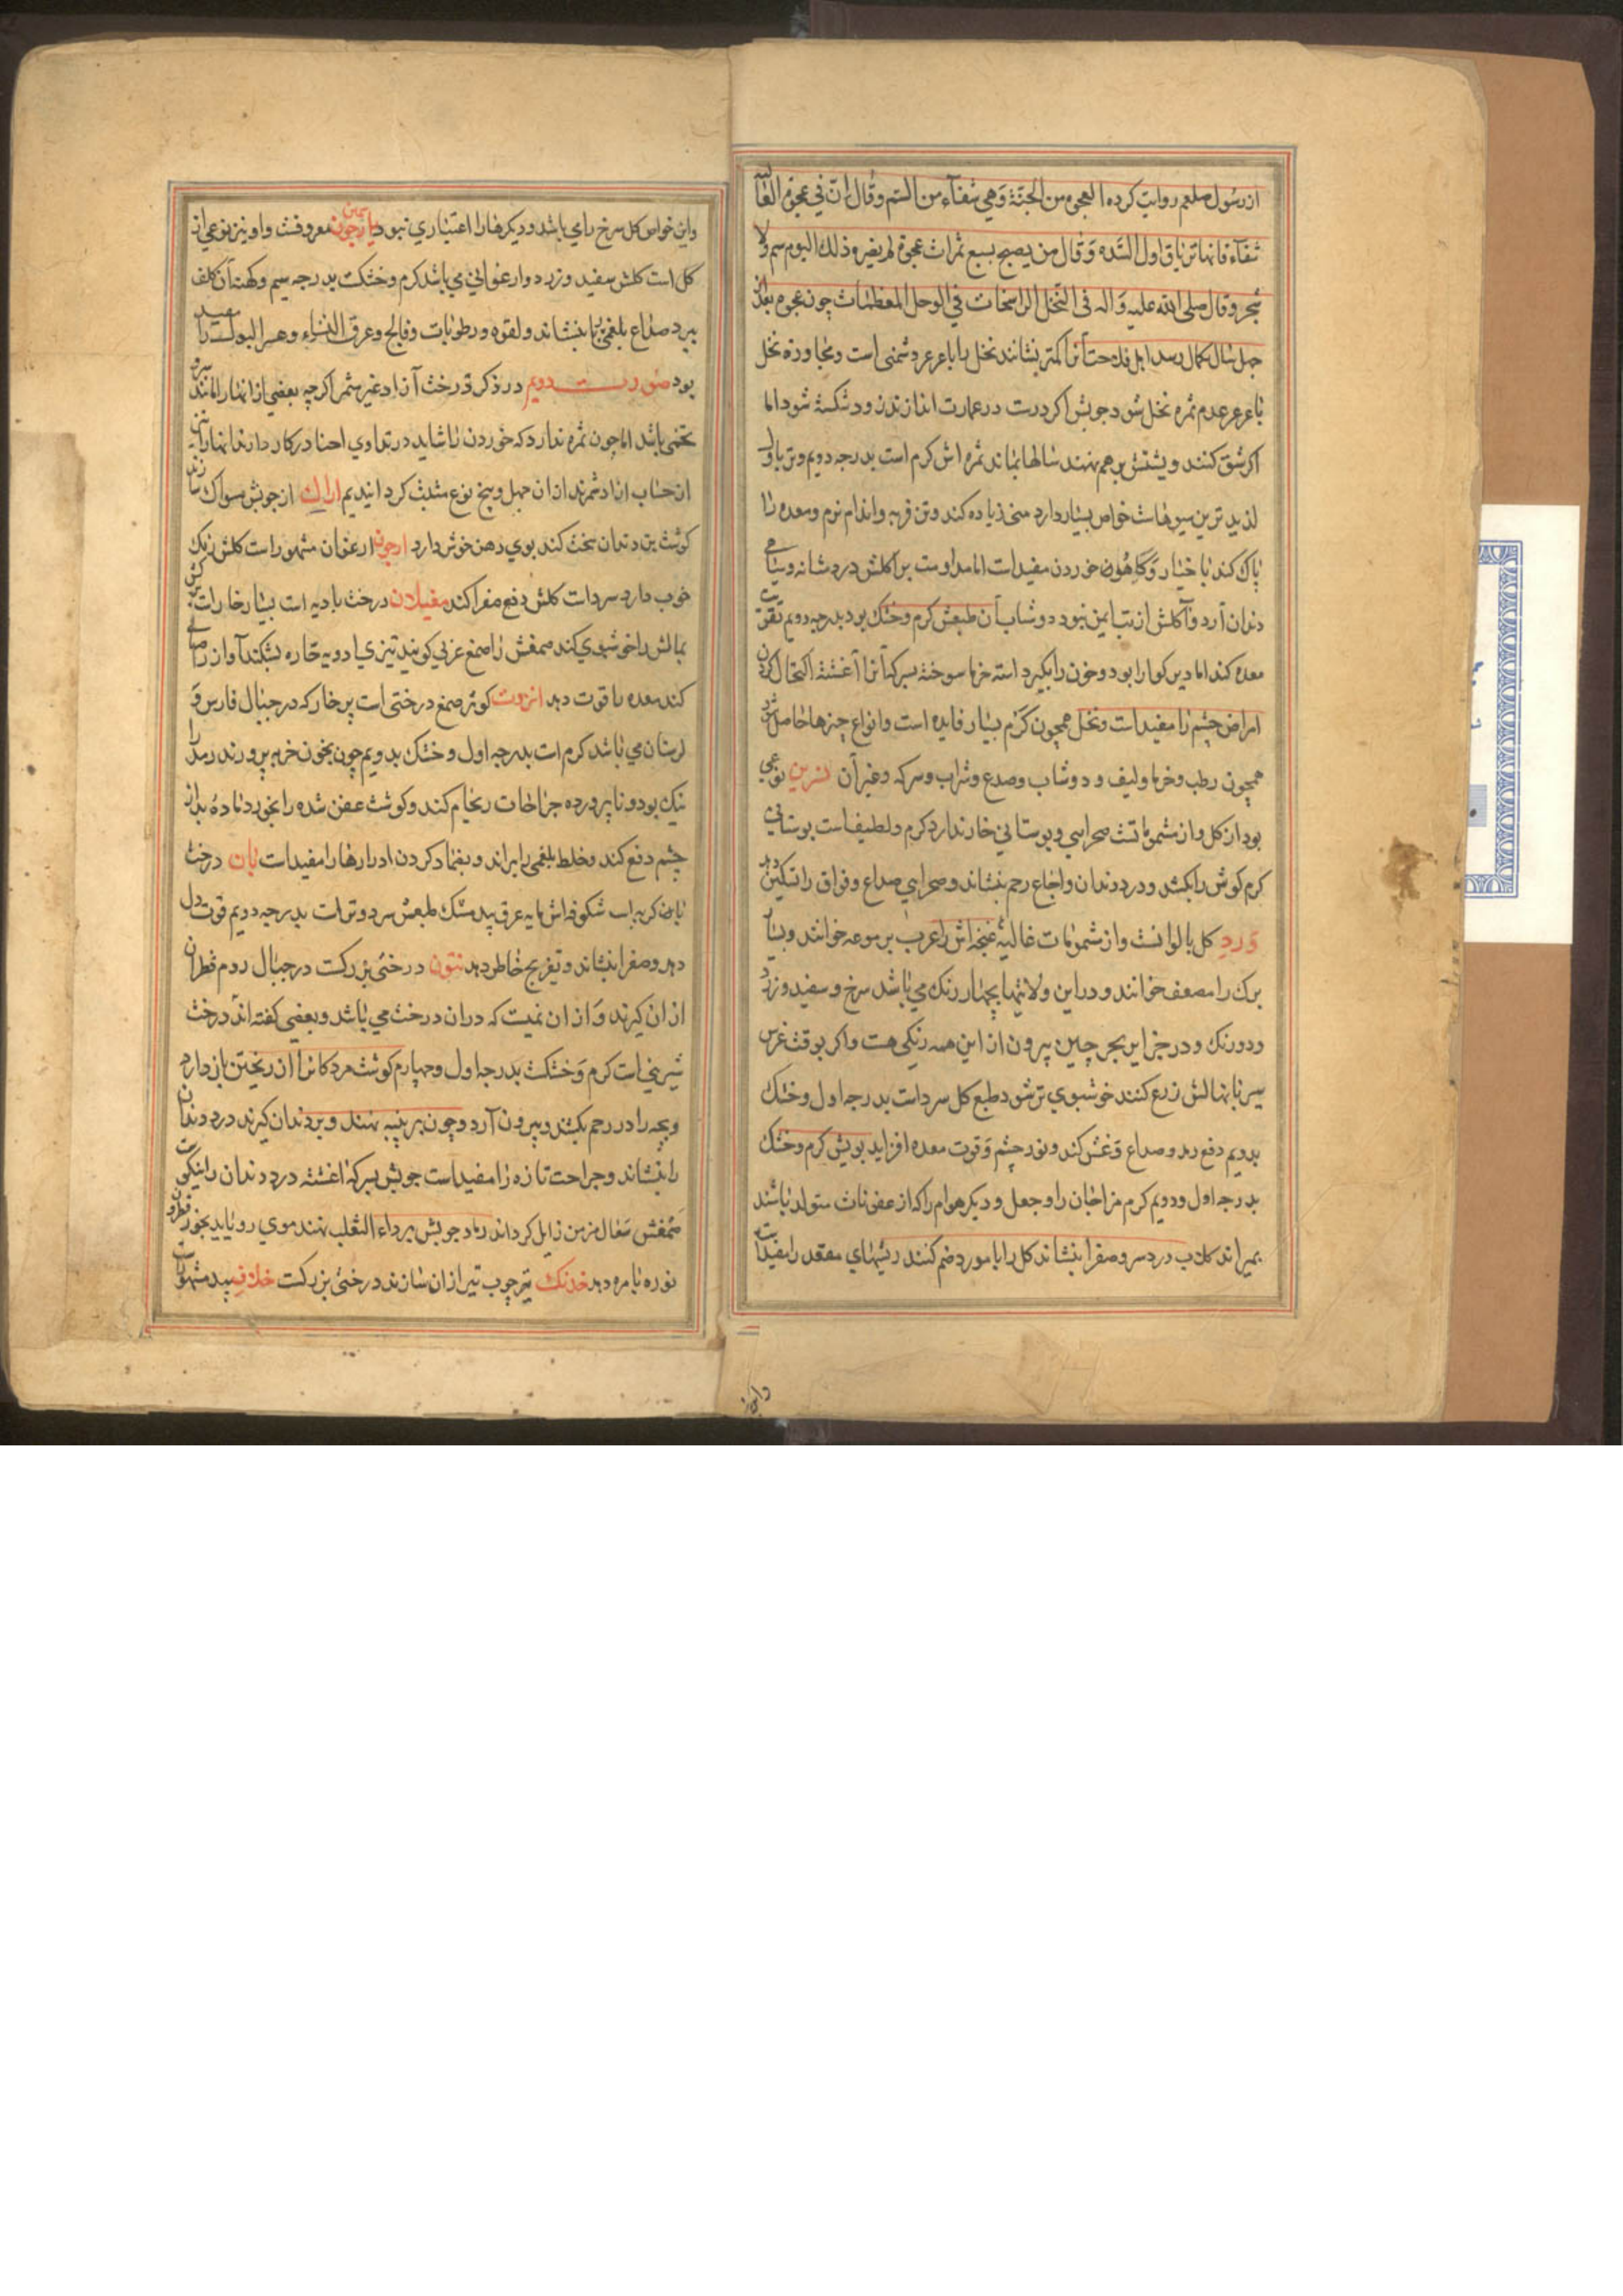 از رسول صلعم روایت کرده العجوه من الجنّة وَهي شفآء من السّم وقال انّ في عجوة العالیه
شفآء فانها تریاق اول السّده وَقال من یصبح بسبع ثمرات عجوة لم یضره ذلك الیوم سم ولا
سحر وقال صلی الله علیه وَاله فی النّخل الراسخات فی الوحل المعظمات چون عجوه بعد از
چهل سال بکمال رسد اهل فلاحت آنرا کمتر نشانند نخل را با عرعر دشمنی است ومجاوره نخل
با عرعر عدم ثمره نخل شود چوبش اکر درست در عمارت اندازند زود شکسته شود اما
اکر شق کنند و پشتش برهم نهند سالها بماند ثمره اش کرم است بدرجه دویم وتر باول
لذیذ ترین میوهاست خواص بسیار دارد منی زیاده کند وتن فربه واندام نرم ومعده را
پاك کند با خیار وَکاهو خوردن مفیدست اما مداومت بر اکلش درد مثانه وسیاهی
دندان آرد وآکلش از تبا یمن نبود دوشاب آن طبعش کرم وخشك بود بدرجه دویم تقویت
معده کند اما دیر کوارا بود وخون را بکیرد استه خرما سوخته بسرکه آنرا آغشته اکتحال کردن
امراض چشم را مفیدست ونخل همچون کَرم بسیار فایده است وانواع چیزها حاصل شود
همچون رطب وخرما ولیف و دوشاب وصدع وشراب وسرکه وغیر آن نسرین نوعی
بود از کل واز مشموماتست صحرایی وبوستانی خار ندارد کرم ولطیفست بوستانی
کرم کوش را بکشد ودرد دندان واوجاع رحم بنشاند وصحرایی صداع وفواق را تسکین دهد
وَرد کل بالوانست واز مشمومات غالیه غنچه اش را عرب برموعه خوانند وبسیار
برك را مضعف خوانند ودر این ولایتها بچهار رنك می باشد سرخ وسفید وزرد
ودورنك ودر جزایر بحر چین بیرون از این همه رنکی هست واکر بوقت غرس
سیر با نهالش زرع کنند خوشبوی تر شود طبع کل سردست بدرجه اول وخشك
بدویم دفع رمد وصداع وَغش کند ونور چشم وَقوت معده افزاید بویش کرم وخشك
بدرجه اول ودویم کرم مزاجان را وجعل ودیکر هوام را که از عفونات متولد باشند
بمیراند کلاب درد سر وصفرا بنشاند کل را با مورد ضم کنند ریشهای مقعد را مفیدست
واین
واین خواص کل سرخ رای باشد ودیکرها را اعتباری نبود یاسمین معروفست واو نیز نوعی از
کل است کلش سفید وزرد وارغوانی می باشد کرم وخشکست بدرجه سیم وکهنه آن کلف
ببرد صداع بلغمی را بنشاند ولقوه ورطوبات وفالج وعرق النساء وعسر البول را مفید
بود صورت دویم در ذکر درخت آزاد غیر مثمر اکرچه بعضی از اینها را مانند سرو
تخمی باشد اما چون ثمره ندارد که خوردن را شاید در تداوی احیانا در کار دارند اینها را نیز
از حساب آزاد شمرند از ان چهل وپنج نوع مثبت کردانیدیم اراك از چوبش مسواك سازند
کوشت بن دندان سخت کند بوی دهن خوش دارد ارجوان ارغوان مشهور است کلش رنك
خوب دارد سردست کلش دفع صفرا کند مغیلان درخت بادیه است بسیار خارست کش
بمالش را خوشبوی کند صمغش را صمغ عربی کویند تیزی ادویه حاره بشکند آواز را صافی
کند معده را قوت دهد انزروت کوثر صمغ درختی است پر خار که در جبال فارس وَ
لرستان می باشد کرم است بدرجه اول وخشك بدویم چون بخون خربه پرورند رمد را
نیك بود ونا پرورده جراحات ریخام کند وکوشت عفن شده را بخورد ماده بد از
چشم دفع کند وخلط بلغمی را براند وبضماد کردن ادرارها را مفیدست بان درخت
بابهن کربه است شکوفه اش مایه عرق بید مشك طبعش سرد وترست بدرجه دویم قوت دل
دهد وصفرا بنشاند وتفریح خاطر دهد تنّون درختی بزرکست در جبال روم قطران
از ان کیرند وَاز ان نمیت که در ان درخت می باشد وبعضی کفته اند درخت
شیرنی است کرم وَخشکست بدرجه اول وچهارم کوشت مردکانرا از ریختن باز دارد
وبچه را در رحم بکشد وبیرون آرد وچون بر پنبه نهند وبر دندان کیرند درد دندان
را بنشاند وجراحت تازه را مفیداست چوبش بسرکه اغشته درد دندان را نیکوست
صَمغش سَعال مزمن زایل کرداند رماد چوبش بر داء الثعلب نهند موی رویاید بخور قطران
نوره با مره دهد خدنك تیر چوب تیر از ان سازند درختی بزرکست خلاف بید مشهورست